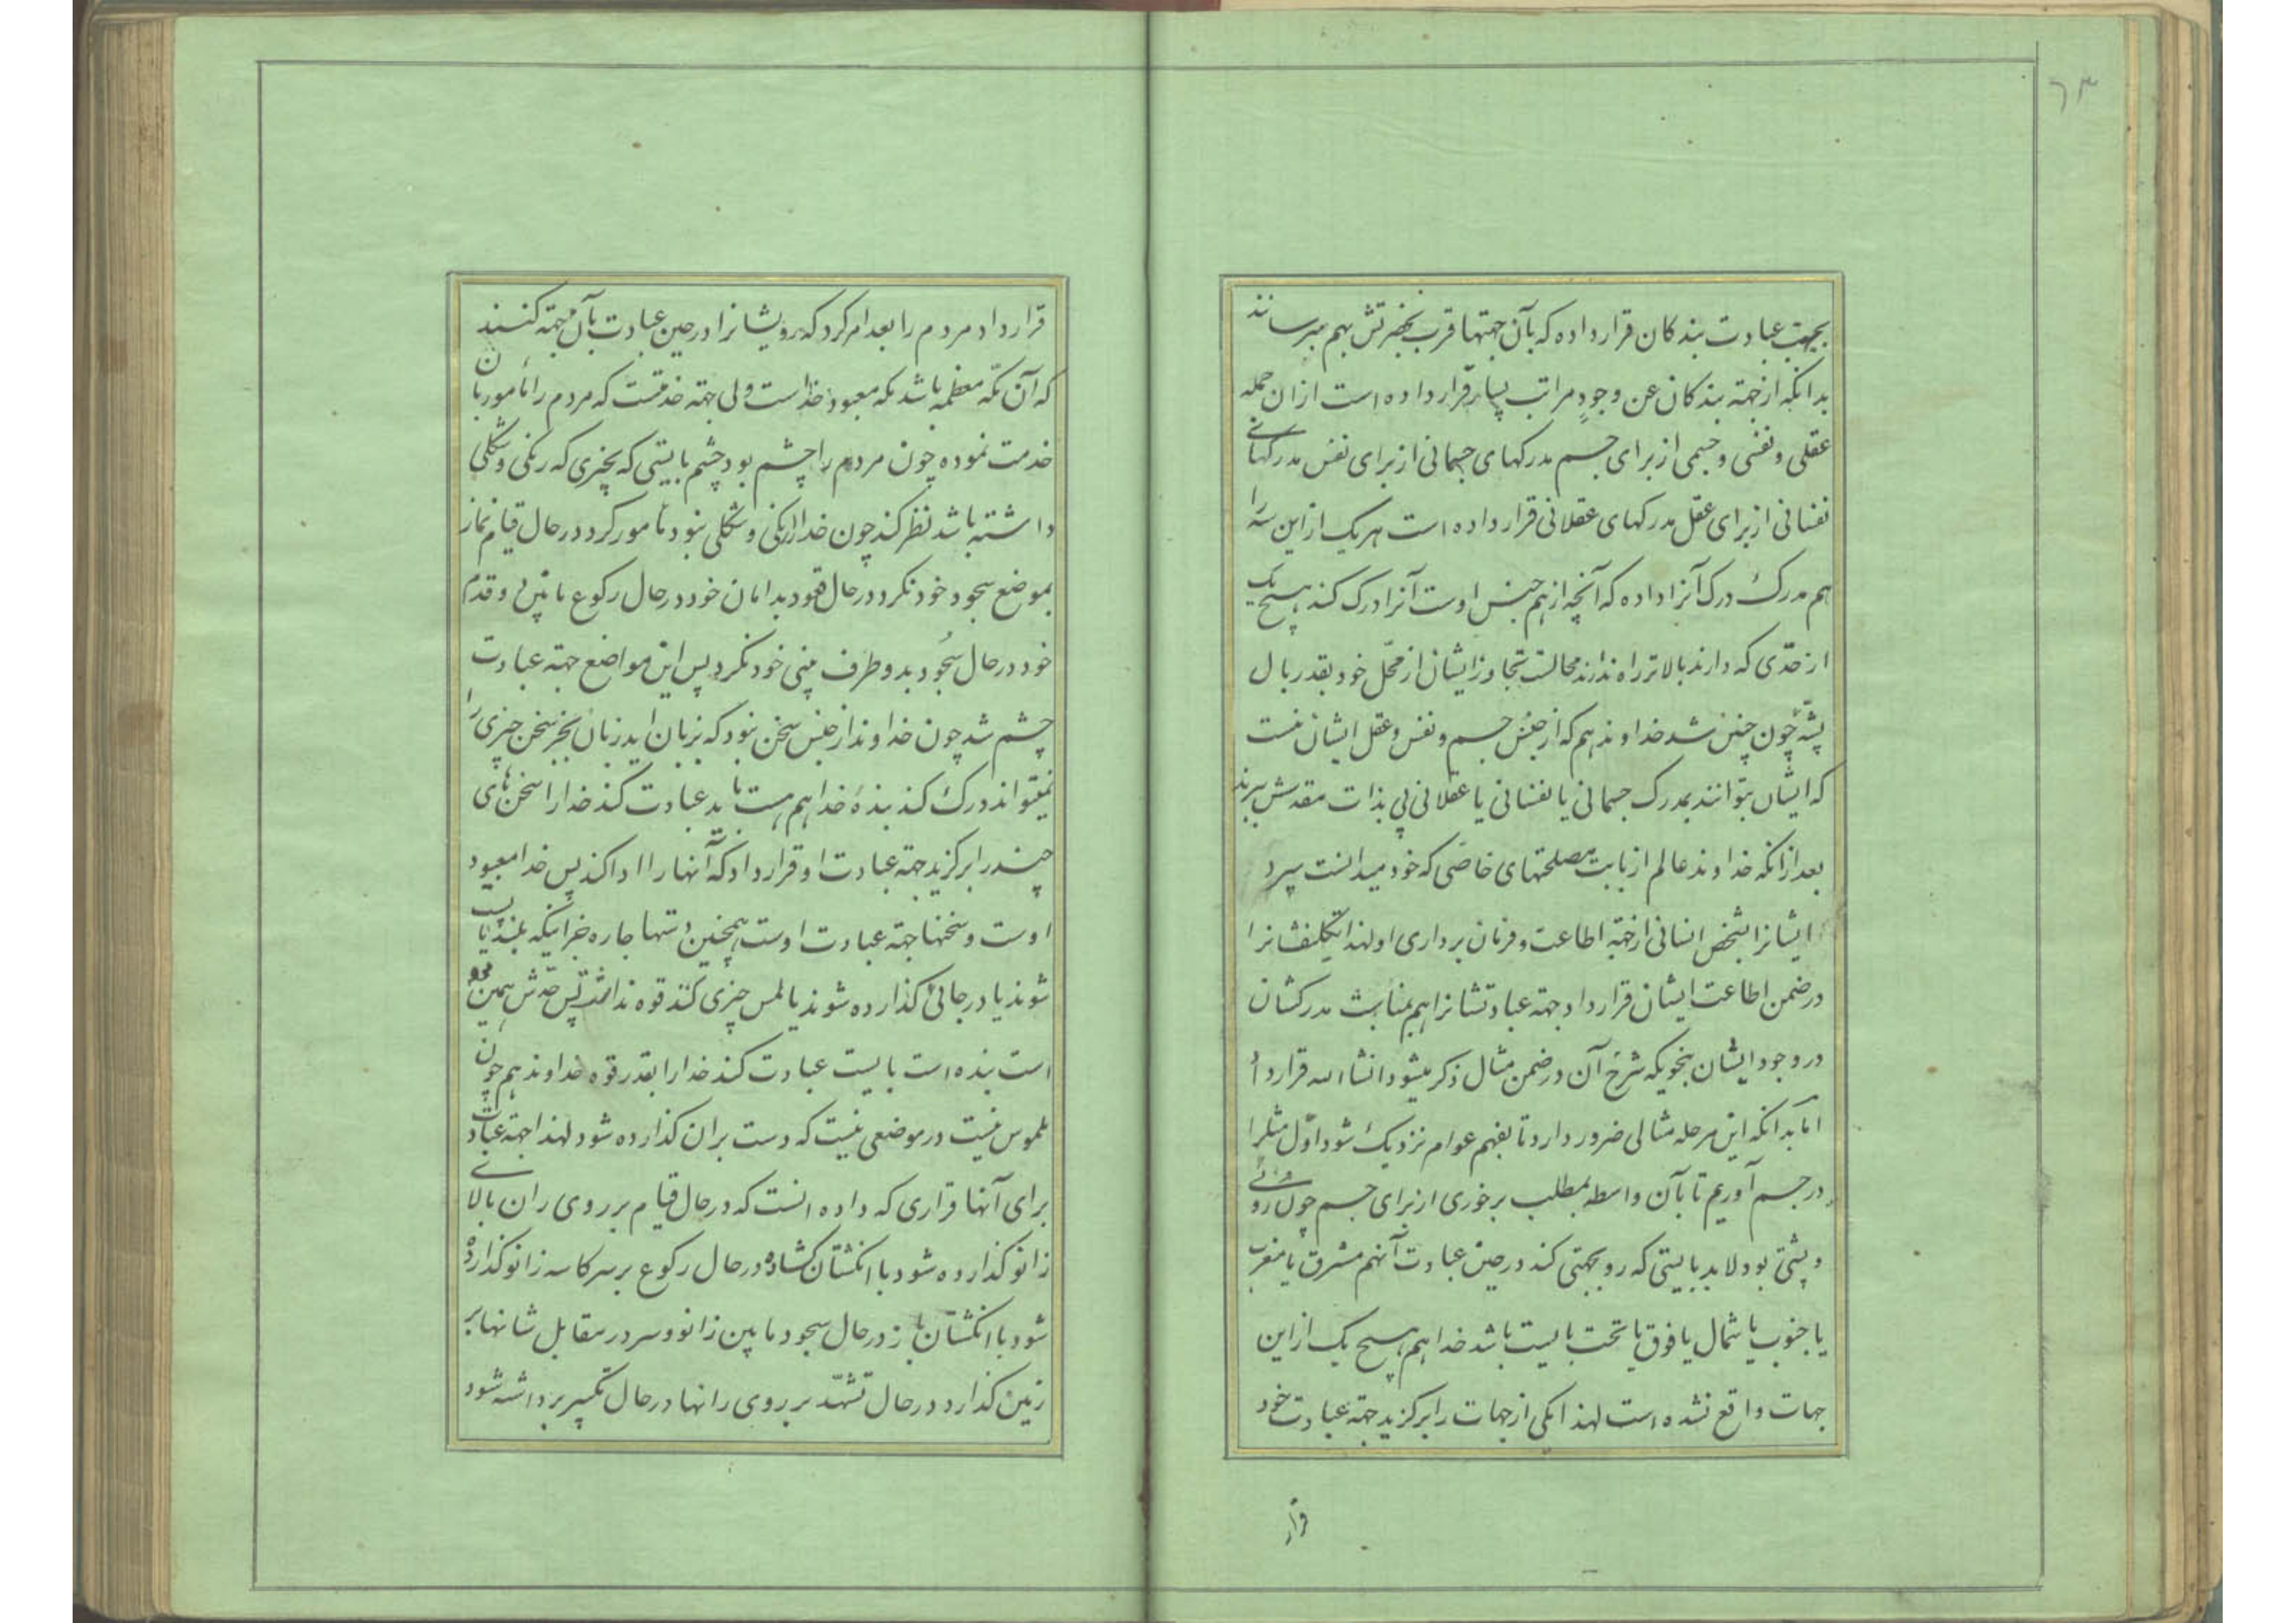 ٦٣
بجهت عبادت بندگان قرار داده که بآن جهتها قرب بحضرتش بهم میرسانند
بدانکه از جهته بندگان عن وجودٍ مراتب بسیار قرار داده است ازان جمله
عقلی و نفسی و جسمی از برای جسم مدرکهای جسمانی از برای نفس مدرکهای
نفسانی از برای عقل مدرکهای عقلانی قرار داده است هر یک از این سه را
هم مدرک درک آنرا داده که آنچه از هم جنس اوست آنرا درک کند هیچ یک
از حدّی که دارند بالاتر راه ندارند محالست تجاوز ایشان از محّل خود بقدر بال
پشّه چون چنین شد خداوند هم که از جنس جسم و نفس و عقل ایشان نیست
که ایشان بتوانند بمدرک جسمانی یا نفسانی یا عقلانی پی بذات مقدسش ببرند
بعد از انکه خداوند عالم از بابت مصلحتهای خاصّی که خود میدانست سپرد
ایشانرا بشخص انسانی از جهته اطاعت و فرمان برداری او لهذا تکلیفشانرا
در ضمن اطاعت ایشان قرار داد جهته عبادتشانرا هم بمناسبت مدرکشان
در وجود ایشان بنحویکه شرح آن در ضمن مثال ذکر میشود انشاالله قرار داد
امّا بدانکه این مرحله مثالی ضرور دارد تا بفهم عوام نزدیک شود اوّل مثلرا
در جسم آوریم تا بآن واسطه بمطلب برخوری از برای جسم چون روئی
و پشتی بود لابد بایستی که رو بجهتی کند در حین عبادت آنهم مشرق یا مغرب
یا جنوب یا شمال یا فوق یا تحت بایست باشد خدا هم هیچ یک از این
جهات واقع نشده است لهذا یکی از جهات را برگزید جهته عبادت خود
قرار
قرار داد مردم را بعد امر کرد که رویشانرا در حین عبادت بآن جهته کنند
که آن مکّه معظمه باشد مکه معبود خداست ولی جهته خدمتست که مردم را مامور بان
خدمت نموده چون مردم را چشم بود چشم بایستی که بچیزی که رنگی و شکلی
داشته باشد نظر کند چون خدا را رنگی و شکلی نبود مامور کرد در حال قیام نماز
بموضع سجود خود نگرد در حال قعود بدامان خود در حال رکوع مابین دو قدم
خود در حال سجُود بدو طرف بینی خود نگرد پس این مواضع جهته عبادت
چشم شد چون خداوند از جنس سخن نبود که بزبان اید زبان بجز سخن چیزی را
نمیتواند درک کند بندهٔ خدا هم هست باید عبادت کند خدا را سخن های
چند را برگزید جهته عبادت او قرار داد که آنها را ادا کند پس خدا معبود
اوست و سخنها جهته عبادت اوست همچنین دستها چاره جز اینکه بلند یا پست
شوند یا در جائی گذارده شوند یا لمس چیزی کنند قوه نداشتند پس حدّش همین قدر
است بنده است بایست عبادت کند خدا را بقدر قوه خداوند هم چون
ملموس نیست در موضعی نیست که دست بران گذارده شود لهذا جهته عبادت
برای آنها قراری که داده انست که در حال قیام بر روی ران بالای
زانو گذارده شود با انگشتان گشاده در حال رکوع بر سر کاسه زانو گذارده
شود با انگشتان باز در حال سجود مابین زانو و سر در مقابل شانها بر
زمین گذارد در حال تشهّد بر روی رانها در حال تکبیر برداشته شود